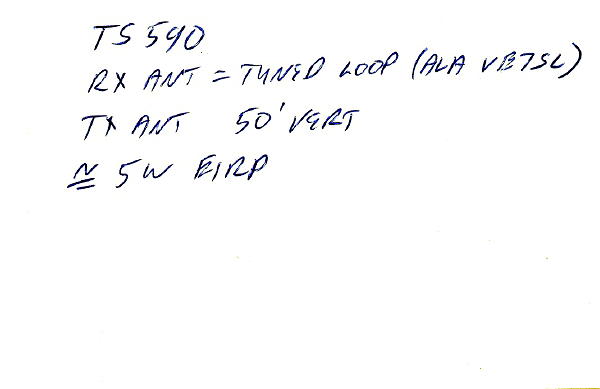 TS 590
RX ANT = TUNED LOOP (ALA VE7SL)
TX ANT 50' VERT
≅ 5W EIRP